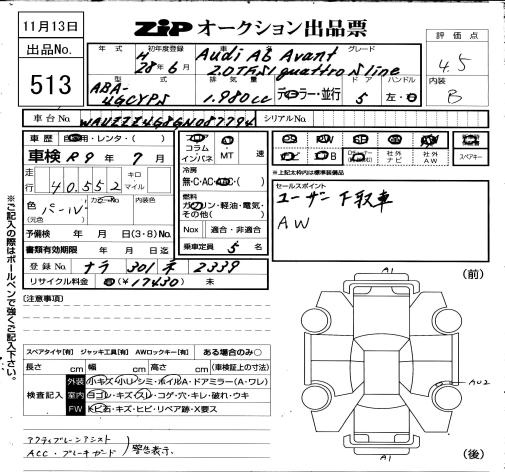 11月13日
ZIP オークション出品票
評価点
4.5
内装
B
出品No.
513
年式 初年度登録 車名 グレード
H 28年6月
Audi A6 Avant
2.0TFSI quattro S line
型式 排気量 ドア ハンドル
ABA-
4GCYPS
1.980cc
ディーラー・並行
5
左・右
車台No.
シリアルNo.
車歴 自家用・レンタ・( )
車検 R9年 7月
走行
40,552
キロ・マイル
色
(元色)
パールP
カラーNo
内装色
予備検 年 月 日(3・8) No.
書類有効期限 年 月 日迄
登録No. ナラ 301 ネ 2339
リサイクル料金 (¥17430) 未
コラム
インパネ
MT
速
冷房
無・C・AC・
燃料
ガソリン・軽油・電気・
その他( )
Nox 適合・非適合
乗車定員 5名
PS
PW
ナビ
社外ナビ
社外AW
スペアキー
※上記太枠内は標準装備品
セールスポイント
ユーザー下取車
AW
※ご記入の際はボールペンで強くご記入下さい。
(注意事項)
スペアタイヤ[有] ジャッキ工具[有] AWロックキー[有] ある場合のみ〇
長さ cm 幅 cm 高さ cm (車検証上の寸法)
検査記入
外装 小キズ・小ハシミ・ホイルA・ドアミラー(A・ワレ)
室内 ヨゴレ・キズ・スレ・コゲ・穴・キレ・破れ・ウキ
FW トビ石・キズ・ヒビ・リペア跡・X要ス
アクティブレーンアシスト
ACC・ブレーキガード
警告表示
A1
(前)
AU2
A1
(後)